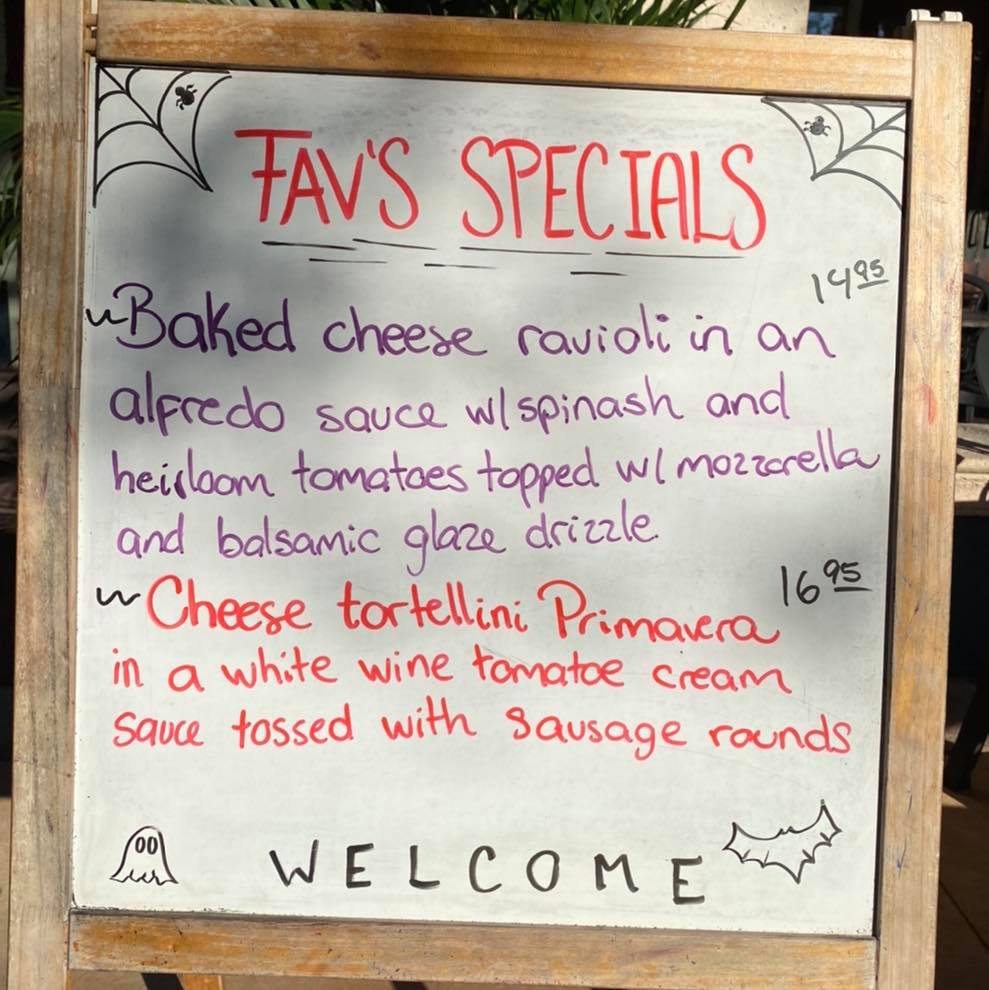 FAV'S SPECIALS
14 95
~Baked cheese ravioli in an
alfredo sauce w/ spinash and
heirloom tomatoes topped w/ mozzarella
and balsamic glaze drizzle.
16 95
~Cheese tortellini Primavera
in a white wine tomatoe cream
sauce tossed with sausage rounds
WELCOME